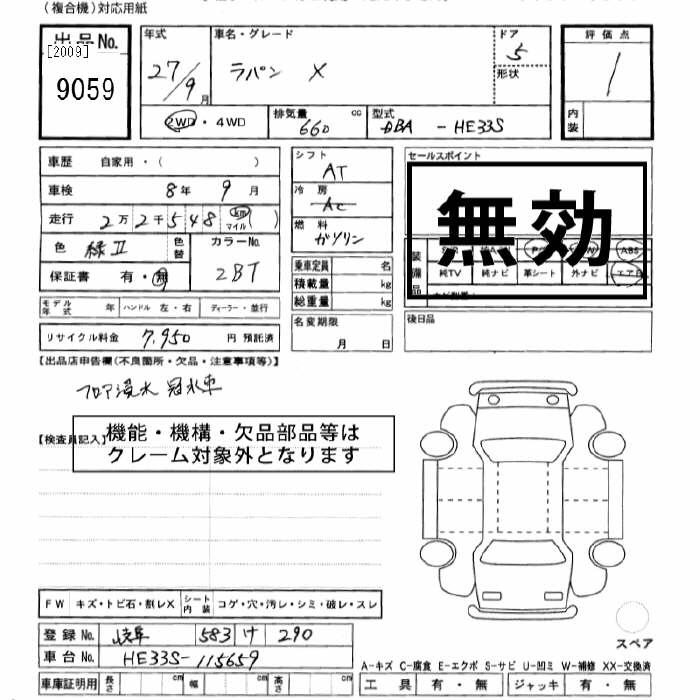 (複合機)対応用紙
出品No.
[2009]
9059
年式
27/9月
車名・グレード
ラパン X
ドア
5
形状
評価点
1
内装
2WD・4WD
排気量
660 cc
型式
DBA-HE33S
車歴 自家用・( )
車検 8年 9月
走行 2万2千548 km マイル ( )
色 緑II
色替
カラーNo.
ZBT
保証書 有・無
モデル年式 年
ハンドル 左・右
ディーラー・並行
リサイクル料金 7,950 円 預託済
シフト
AT
冷房
AC
燃料
ガソリン
乗車定員 名
積載量 kg
総重量 kg
名変期限
月 日
セールスポイント
無効
装備品
ABS
純TV 純ナビ 革シート 外ナビ エアB
後日品
【出品店申告欄(不良箇所・欠品・注意事項等)】
フロア浸水 冠水車
【検査員記入】
機能・機構・欠品部品等は
クレーム対象外となります
FW キズ・トビ石・割レX
シート内装 コゲ・穴・汚レ・シミ・破レ・スレ
登録No. 岐阜 583 け 290
車台No. HE33S-115659
車庫証明用 長さ cm 幅 cm 高さ cm
スペア
A-キズ C-腐食 E-エクボ S-サビ U-凹ミ W-補修 XX-交換済
工具 有・無 ジャッキ 有・無